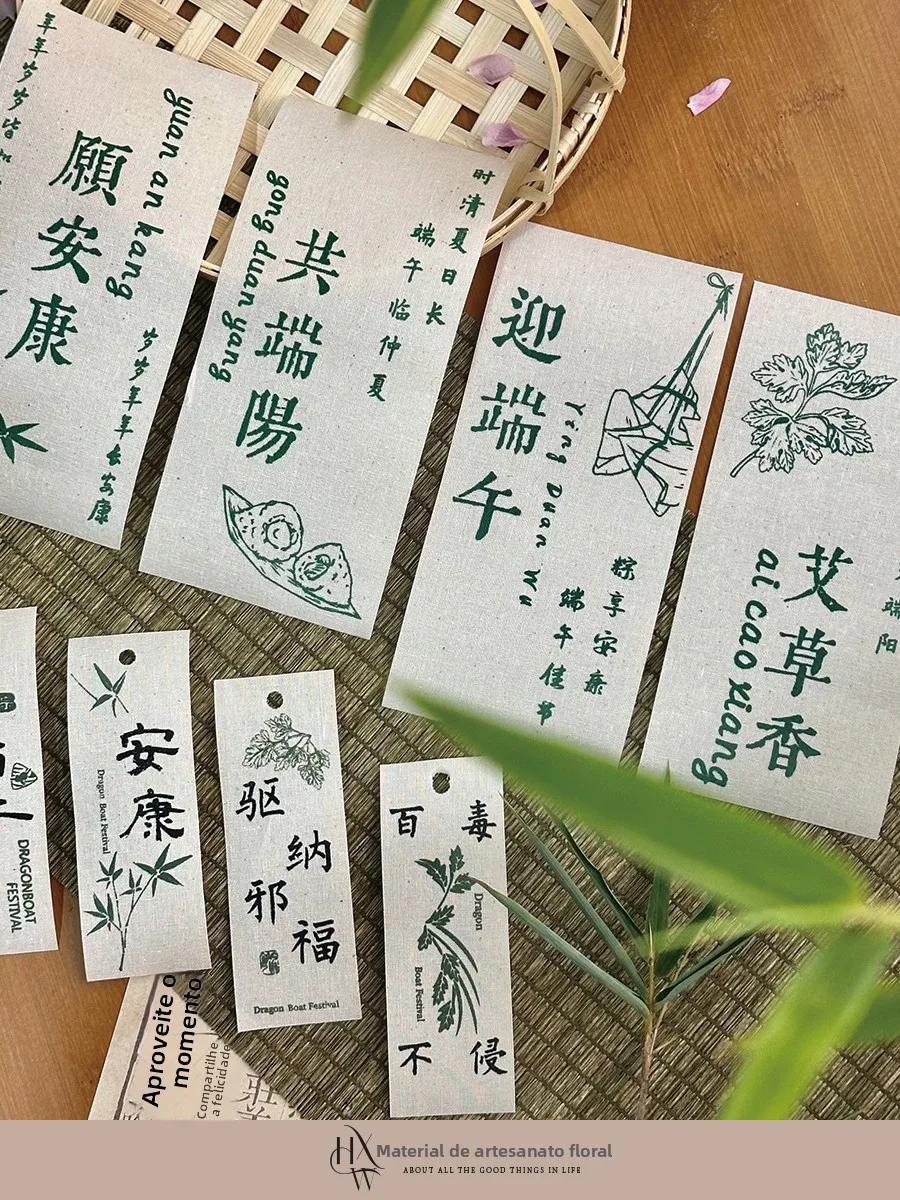 年年岁岁皆如
yuan an kang
願安康
岁岁年年长安康
gong duan yang
共端陽
时清夏日长
端午临仲夏
迎端午
Ying Duan Wu
粽享安康
端午佳节
艾草香
ai cao xiang
端阳
DRAGONBOAT
FESTIVAL
安康
Dragon Boat Festival
驱邪
纳福
Dragon Boat Festival
百毒
不侵
Dragon
Boat Festival
Aproveite o
momento
Compartilhe
a felicidade
Material de artesanato floral
ABOUT ALL THE GOOD THINGS IN LIFE